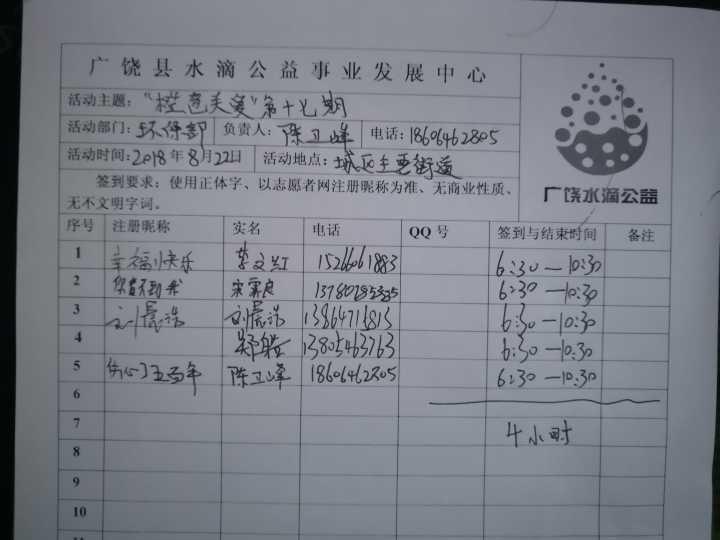 广饶县水滴公益事业发展中心
活动主题："橙色关爱"第十七期
活动部门：环保部 负责人：陈卫峰 电话：18606462805
活动时间：2018年8月22日 活动地点：城区主要街道
签到要求：使用正体字、以志愿者网注册昵称为准、无商业性质、
无不文明字词。
广饶水滴公益
序号 注册昵称 实名 电话 QQ号 签到与结束时间 备注
1 幸福快乐 李文红 15266061883 6:30—10:30
2 你看不到我 6:30—10:30
3 刘晨浩 刘晨浩 13864715813 6:30—10:30
4 13805463763 6:30—10:30
5 伤心了五百年 陈卫峰 18606462805 6:30—10:30
6
7 4小时
8
9
10